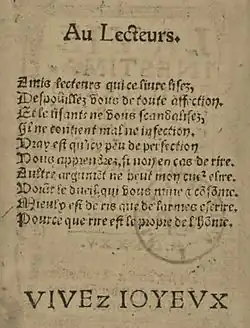 Au Lecteurs.
Amis lecteurs qui ce liure lisez,
Despouillez vous de toute affection.
Et le lisants ne vous scandalisez,
Il ne contient mal ne infection.
Vray est qu'icy peu de perfection
Vous apprendrez, si non en cas de rire.
Aultre argument ne peut mon cueur elire.
Voiãt le dueil, qui vous mine & cõsõme.
Mieulx est de ris que de larmes escrire.
Pource que rire est le propre de l'hõme.
VIVEz IOYEVX